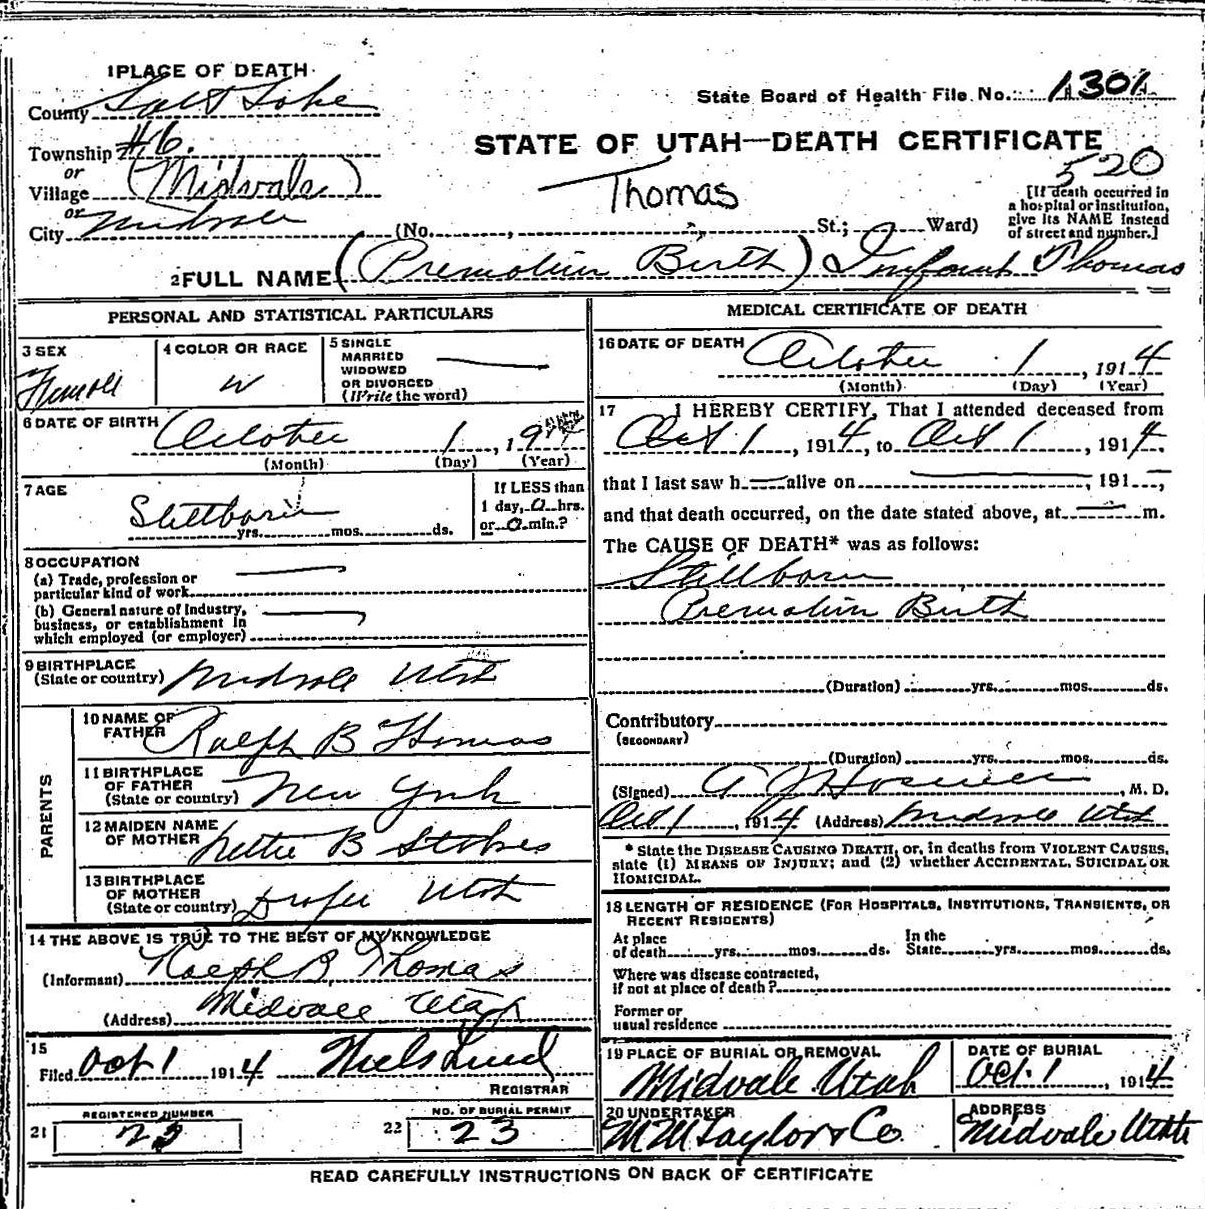 1 PLACE OF DEATH
County Salt Lake
State Board of Health File No. 1301
Township #6.
STATE OF UTAH—DEATH CERTIFICATE
or
Village (Midvale)
Thomas
520
or
City Midvale (No. , St.; Ward)
[If death occurred in a hospital or institution, give its NAME instead of street and number.]
2 FULL NAME (Premature Birth) Infant Thomas
PERSONAL AND STATISTICAL PARTICULARS
3 SEX
Female
4 COLOR OR RACE
W
5 SINGLE
MARRIED
WIDOWED
OR DIVORCED
(Write the word)
6 DATE OF BIRTH October 1, 191
(Month) (Day) (Year)
7 AGE
Stillborn
yrs. mos. ds.
If LESS than
1 day, 0 hrs.
or 0 min.?
8 OCCUPATION
(a) Trade, profession or
particular kind of work
(b) General nature of Industry,
business, or establishment in
which employed (or employer)
9 BIRTHPLACE
(State or country) Midvale Utah
PARENTS
10 NAME OF
FATHER Ralph B Thomas
11 BIRTHPLACE
OF FATHER
(State or country) New York
12 MAIDEN NAME
OF MOTHER Nettie B Stokes
13 BIRTHPLACE
OF MOTHER
(State or country) Draper Utah
14 THE ABOVE IS TRUE TO THE BEST OF MY KNOWLEDGE
(Informant) Ralph B Thomas
(Address) Midvale Utah
15
Filed Oct 1 1914 Niels Lind
REGISTRAR
REGISTERED NUMBER
21 23
NO. OF BURIAL PERMIT
22 23
MEDICAL CERTIFICATE OF DEATH
16 DATE OF DEATH October 1, 1914
(Month) (Day) (Year)
17 I HEREBY CERTIFY, That I attended deceased from
Oct 1, 1914, to Oct 1, 1914,
that I last saw h— alive on —, 191—,
and that death occurred, on the date stated above, at — m.
The CAUSE OF DEATH* was as follows:
Stillborn
Premature Birth
(Duration) yrs. mos. ds.
Contributory
(SECONDARY)
(Duration) yrs. mos. ds.
(Signed) , M. D.
Oct 1, 1914 (Address) Midvale Utah
* State the DISEASE CAUSING DEATH, or, in deaths from VIOLENT CAUSES,
state (1) MEANS OF INJURY; and (2) whether ACCIDENTAL, SUICIDAL OR
HOMICIDAL.
18 LENGTH OF RESIDENCE (FOR HOSPITALS, INSTITUTIONS, TRANSIENTS, OR
RECENT RESIDENTS)
At place
of death yrs. mos. ds.
In the
State yrs. mos. ds.
Where was disease contracted,
if not at place of death?
Former or
usual residence
19 PLACE OF BURIAL OR REMOVAL
Midvale Utah
DATE OF BURIAL
Oct. 1, 1914
20 UNDERTAKER
M M Taylor & Co.
ADDRESS
Midvale Utah
READ CAREFULLY INSTRUCTIONS ON BACK OF CERTIFICATE